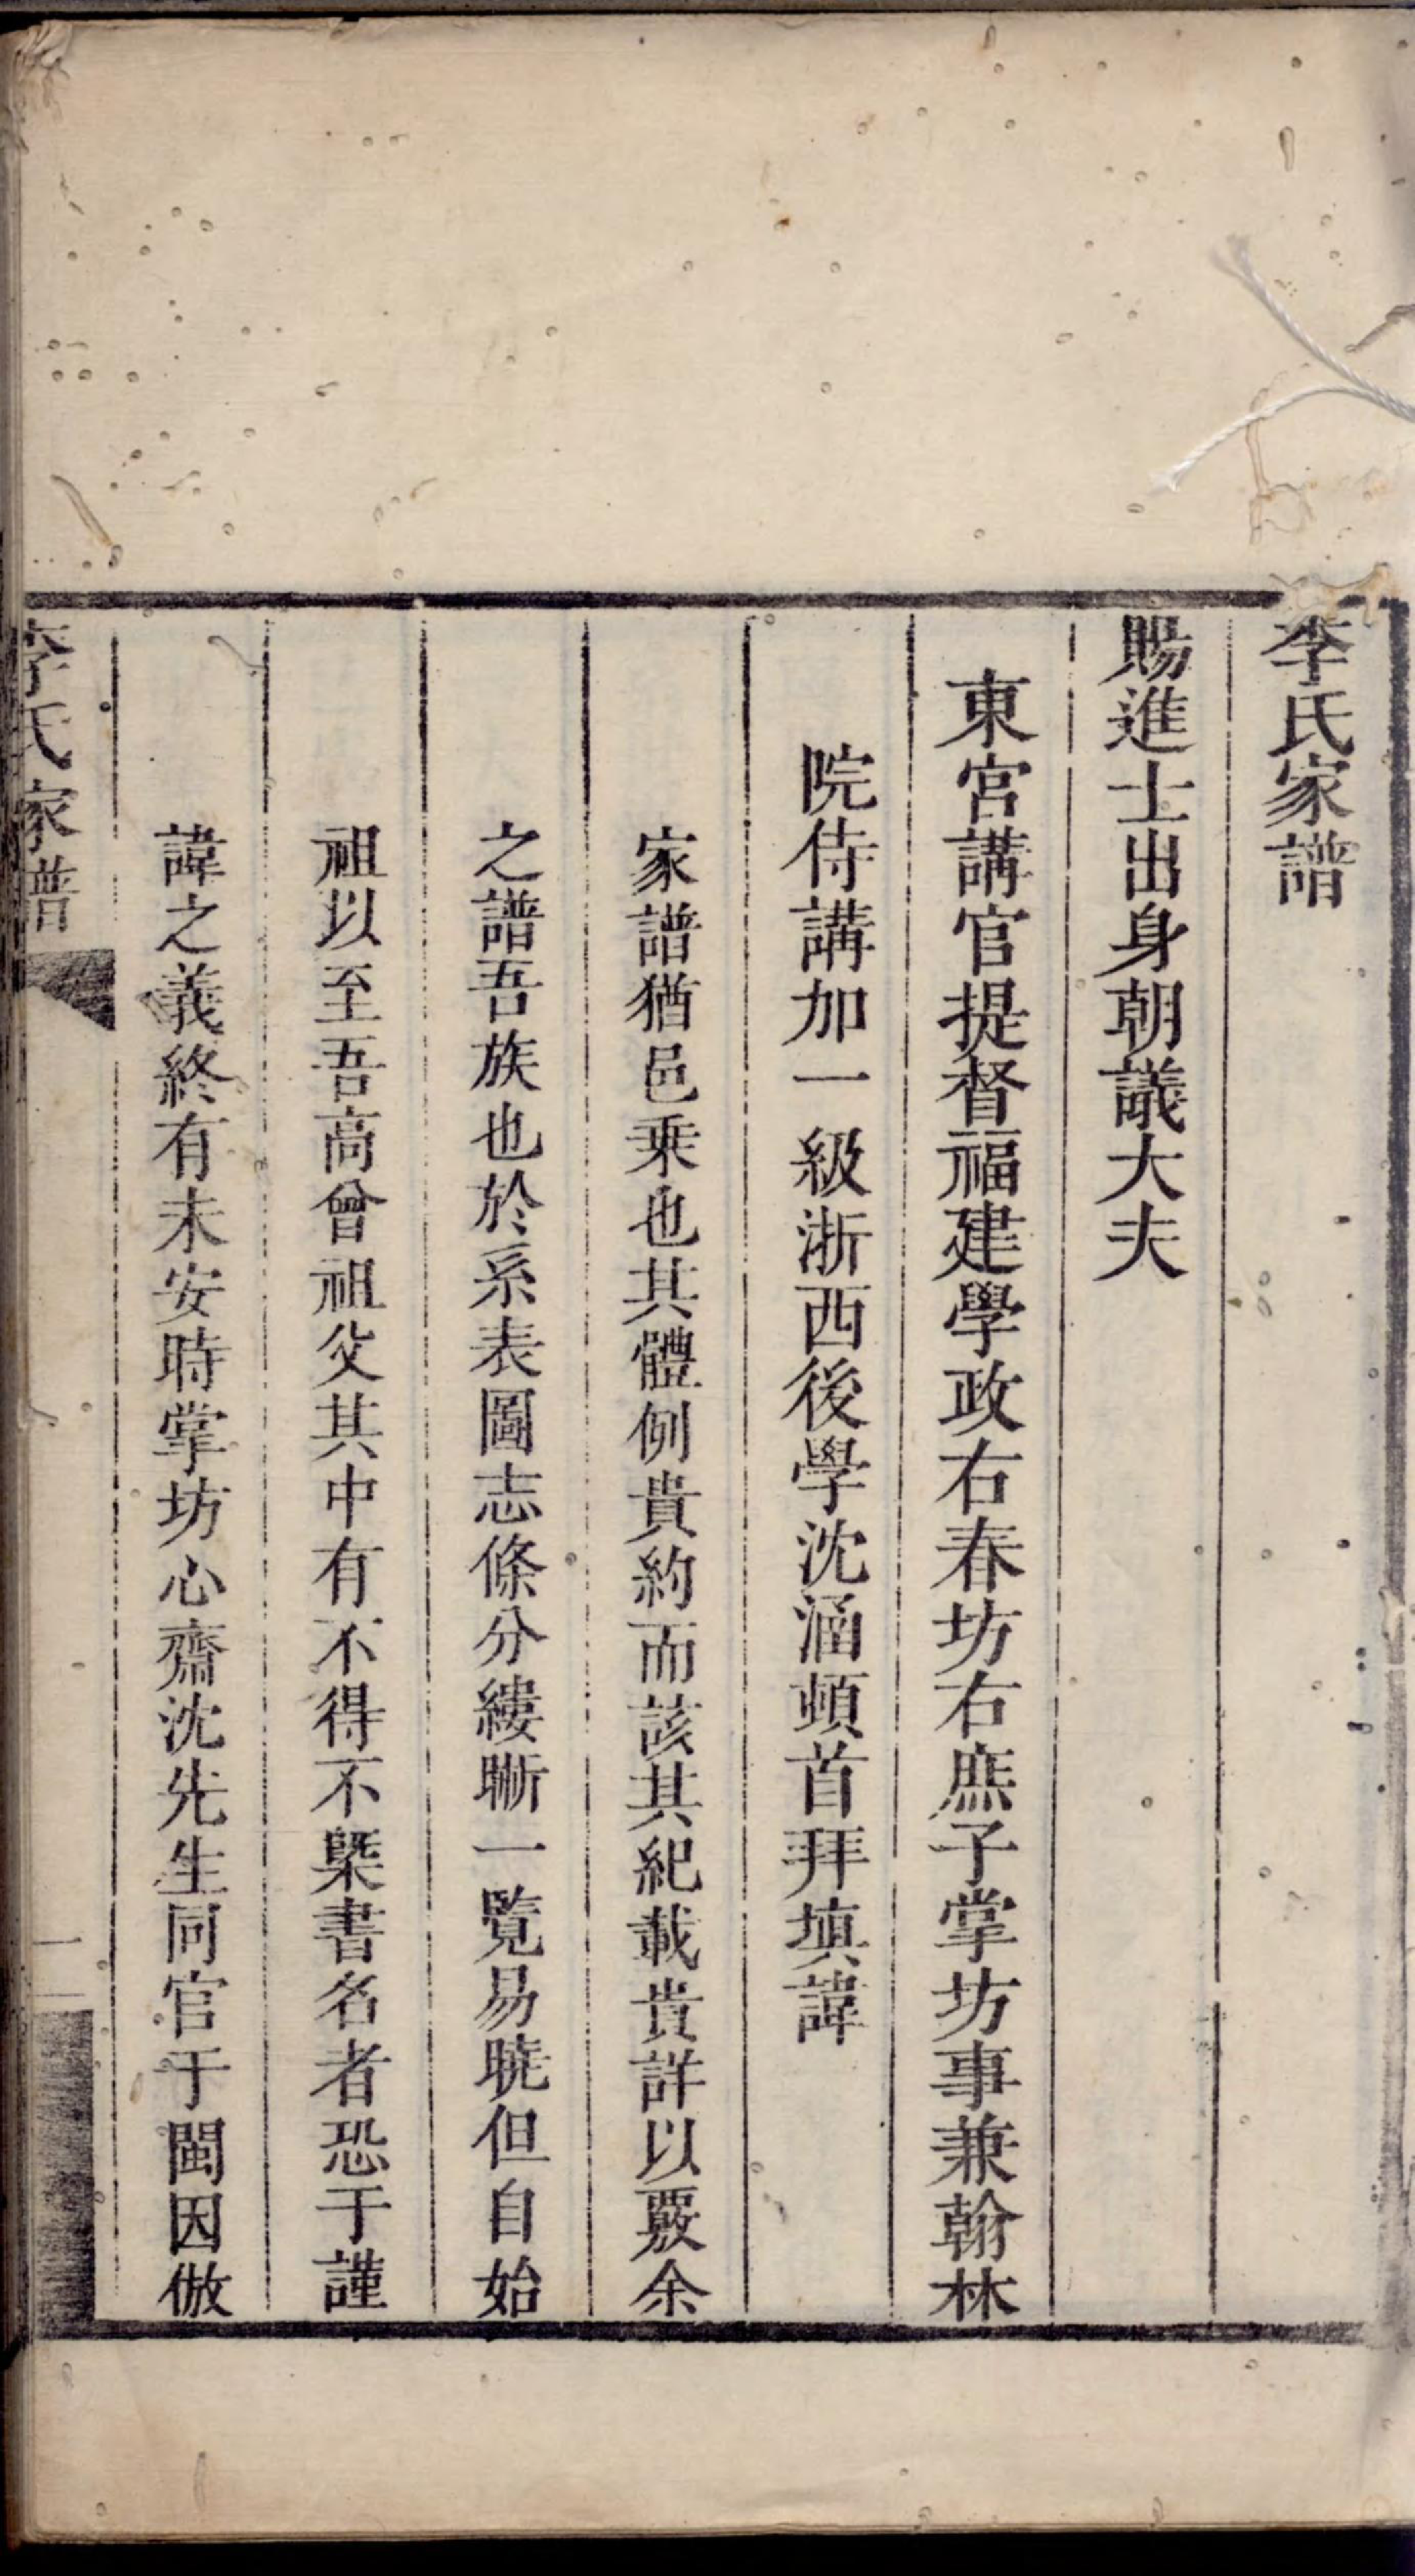 李氏家譜
賜進士出身朝議大夫
東宮講官提督福建學政右春坊右庶子掌坊事兼翰林
院侍講加一級浙西後學沈涵頓首拜填諱
家譜猶邑乗也其體例貴約而該其紀載貴詳以覈余
之譜吾族也於系表圖志條分縷晣一覧易曉但自始
祖以至吾高曾祖父其中有不得不槩書名者恐于謹
諱之義終有未安時掌坊心齋沈先生同官于閩因倣
李氏家譜
一